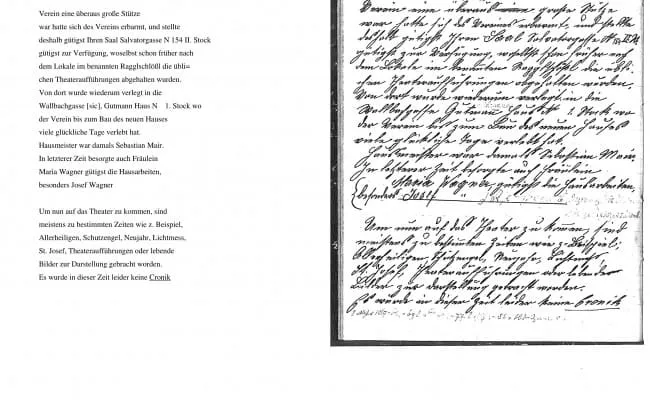 Verein eine überaus große Stütze
war hatte sich des Vereins erbarmt, und stellte
deshalb gütigst Ihren Saal Salvatorgasse N 154 II. Stock
gütigst zur Verfügung, woselbst schon früher nach
dem Lokale im benannten Ragglschlößl die übli=
chen Theateraufführungen abgehalten wurden.
Von dort wurde wiederum verlegt in die
Wallbachgasse [sic], Gutmann Haus N 1. Stock wo
der Verein bis zum Bau des neuen Hauses
viele glückliche Tage verlebt hat.
Hausmeister war damals Sebastian Mair.
In letzterer Zeit besorgte auch Fräulein
Maria Wagner gütigst die Hausarbeiten,
besonders Josef Wagner
Um nun auf das Theater zu kommen, sind
meistens zu bestimmten Zeiten wie z. Beispiel,
Allerheiligen, Schutzengel, Neujahr, Lichtmess,
St. Josef, Theateraufführungen oder lebende
Bilder zur Darstellung gebracht worden.
Es wurde in dieser Zeit leider keine Cronik
Verein eine überaus große Stütze
war hatte sich des Vereins erbarmt, und stellte
deshalb gütigst Ihren Saal Salvatorgasse N 154 II.
gütigst zur Verfügung, woselbst schon früher nach
dem Lokale im benannten Ragglschlößl die übli=
chen Theateraufführungen abgehalten wurden.
Von dort wurde wiederum verlegt in die
Wallbachgasse Gutmann Haus N 1. Stock wo
der Verein bis zum Bau des neuen Hauses
viele glückliche Tage verlebt hat.
Hausmeister war damals Sebastian Mair.
In letzterer Zeit besorgte auch Fräulein
Maria Wagner gütigst die Hausarbeiten,
besonders Josef "
Um nun auf das Theater zu kommen, sind
meistens zu bestimmten Zeiten wie z. Beispiel;
Allerheiligen, Schutzengel, Neujahr, Lichtmess,
St. Josef, Theateraufführungen oder lebende
Bilder zur Darstellung gebracht worden.
Es wurde in dieser Zeit leider keine Cronik